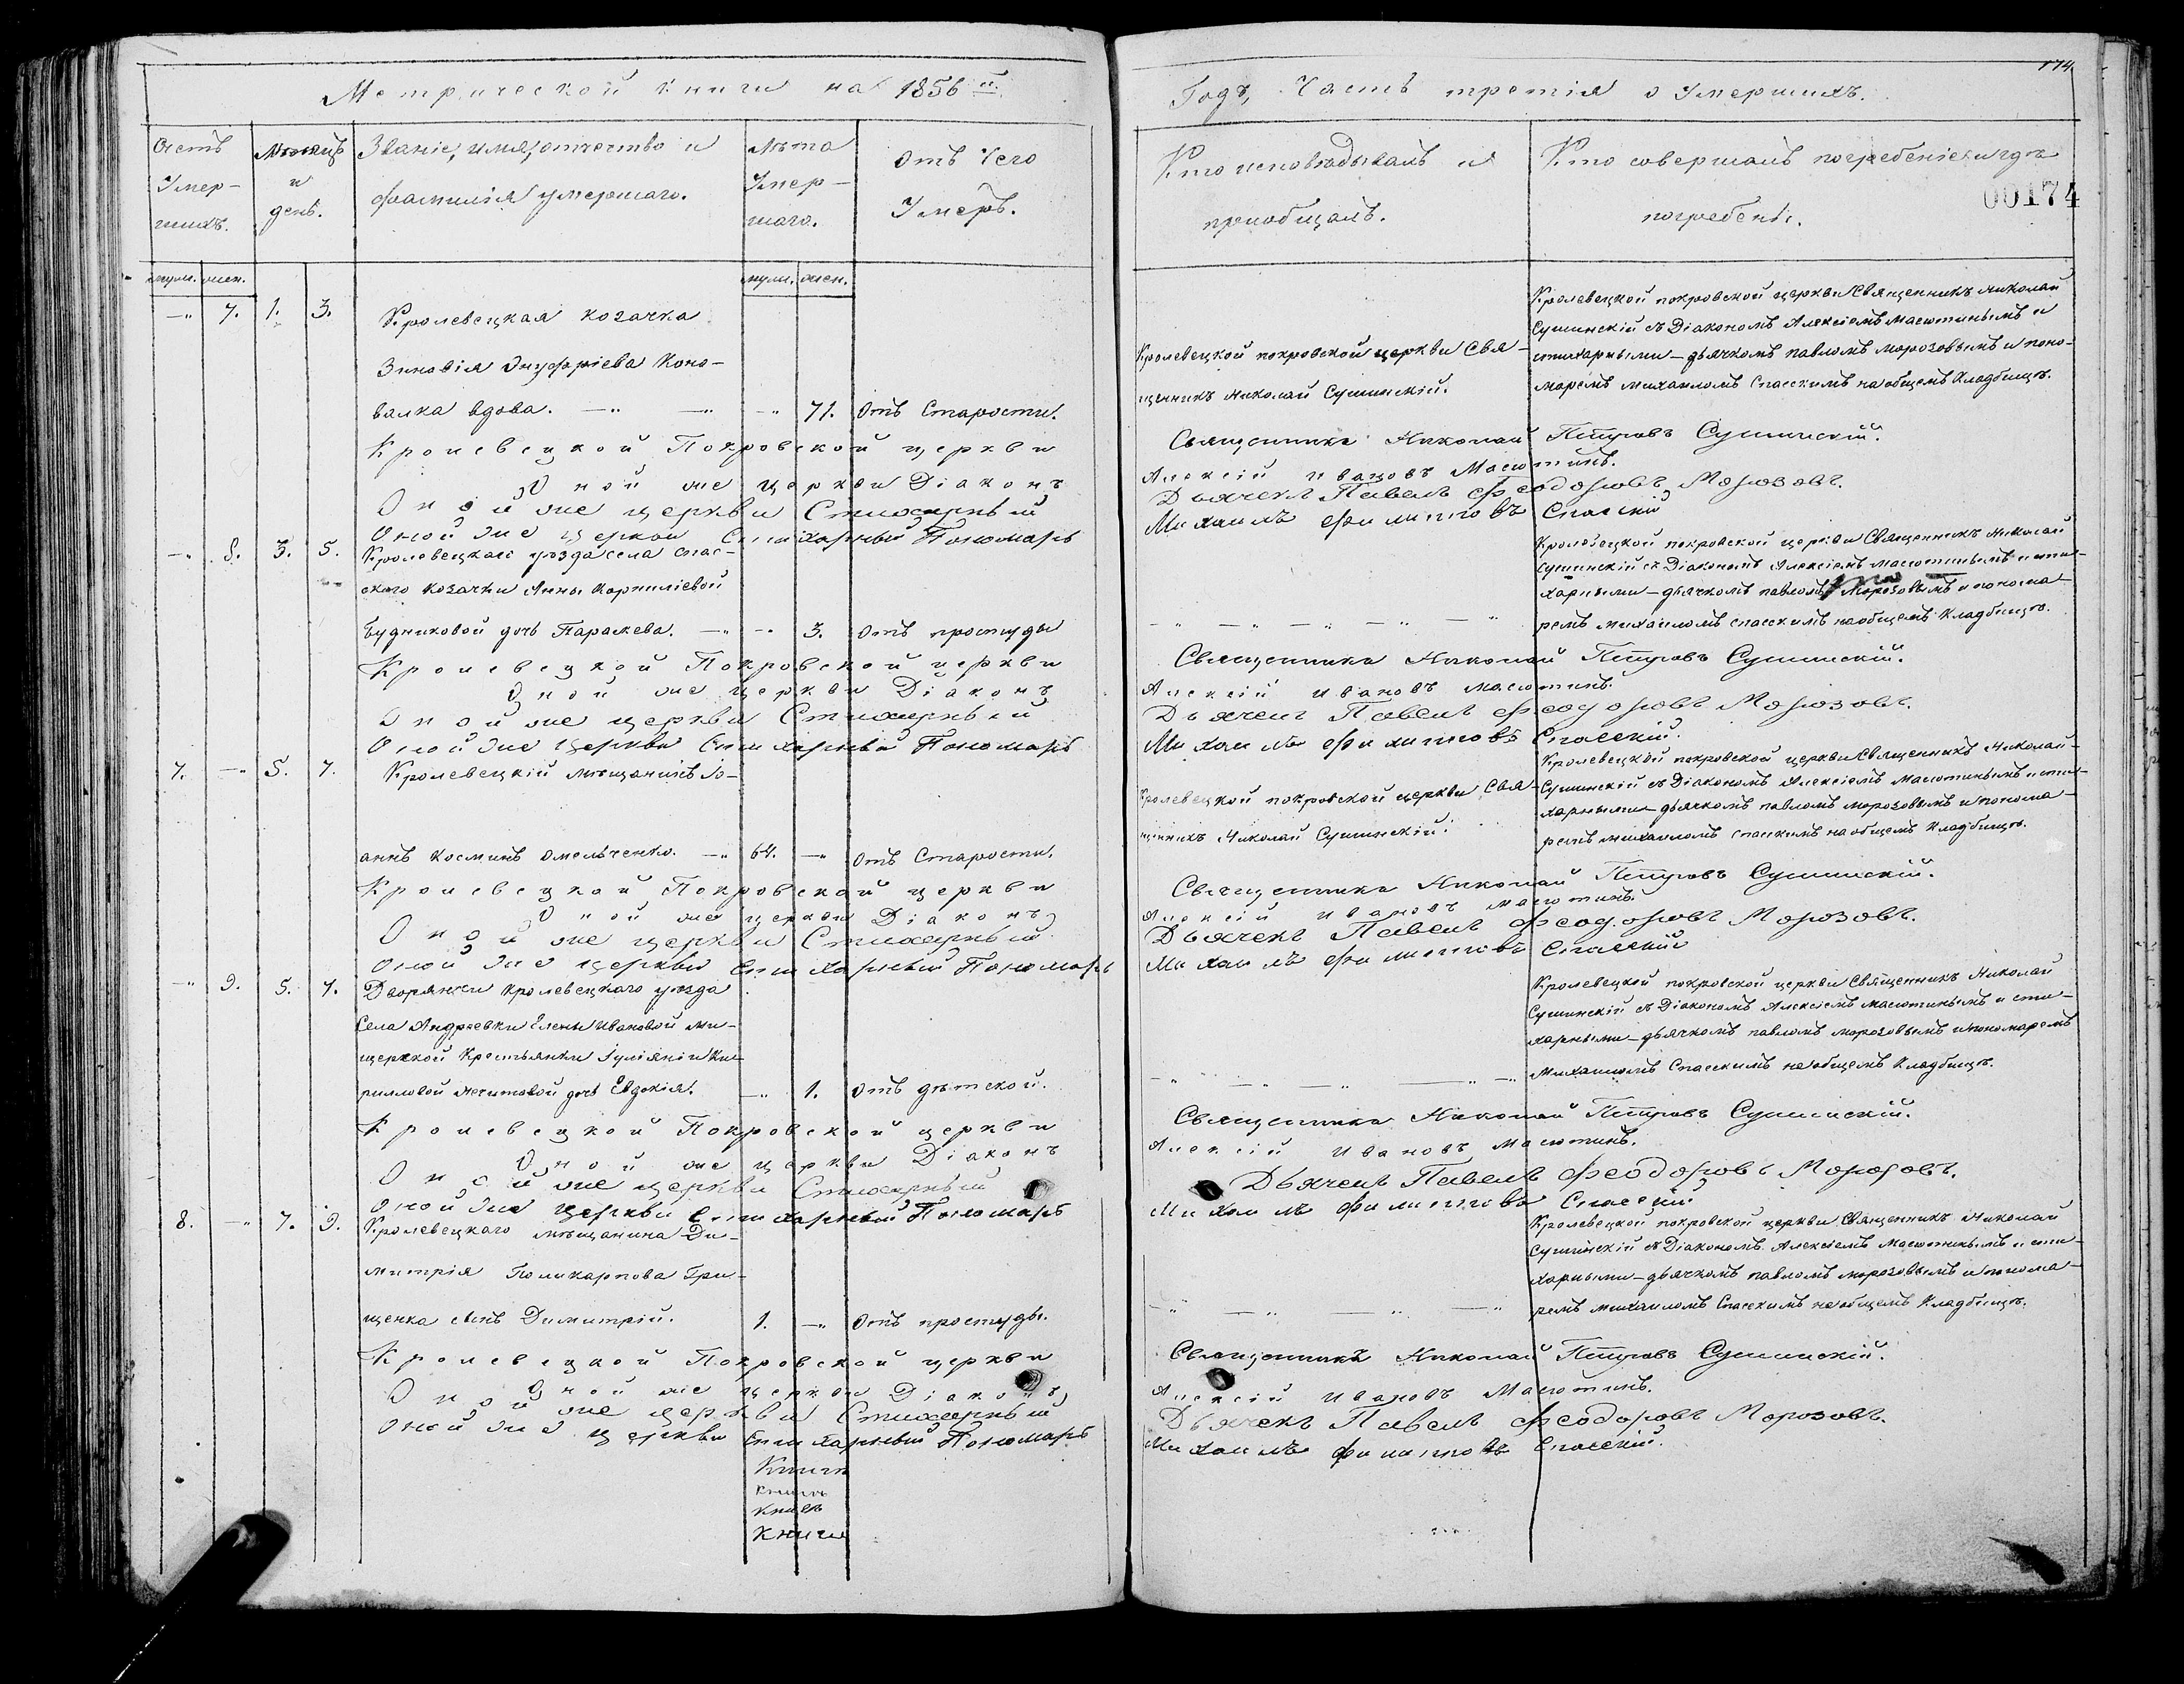 Метрической книги на 1856й.
Счетъ Умер-шихъ.
Мѣсяцъ и день.
Званіе, имя, отчество и фамилія умершаго.
Лѣта Умер-шаго.
Отъ Чего Умеръ.
муж. жен.
муж. жен.
-"- 7. 1. 3. Кролевецкая козачка
Зиновія Онуфріева Коно-
валка вдова. -"- -"- -"- 71. Отъ Старости.
Кролевецкой Покровской церкви
Оной же церкви Діаконъ
Оной же церкви Стихарный
Оной же церкви Стихарный Пономарь
-"- 8. 3. 5. Кролевецкаго уѣзда села Спас-
ского козачки Анны Корниліевой
Будниковой дочь Параскева. -"- -"- 3. Отъ простуды
Кролевецкой Покровской церкви
Оной же церкви Діаконъ
Оной же церкви Стихарный
Оной же церкви Стихарный Пономарь
7. -"- 5. 7. Кролевецкій мѣщанинъ Іо-
аннъ Косминъ Омельченко. -"- 64. -"- Отъ Старости.
Кролевецкой Покровской церкви
Оной же церкви Діаконъ
Оной же церкви Стихарный
Оной же церкви Стихарный Пономарь
-"- 9. 5. 7. Дворянки Кролевецкаго уѣзда
Села Андреевки Елены Ивановой
Крестьянки Іуліяніи Ки-
рилловой дочь Евдокія. -"- 1. Отъ дѣтской.
Кролевецкой Покровской церкви
Оной же церкви Діаконъ
Оной же церкви Стихарный
Оной же церкви Стихарный Пономарь
8. -"- 7. 9. Кролевецкаго мѣщанина Ди-
митрія Поликарпова Гри-
щенка сынъ Димитрій. 1. -"- Отъ простуды.
Кролевецкой Покровской церкви
Оной же церкви Діаконъ
Оной же церкви Стихарный
Оной же церкви Стихарный Пономарь
Книги
Книги
174
Годъ, Часть третія о Умершихъ.
Кто исповѣдывалъ и пріобщалъ.
Кто совершалъ погребеніе и гдѣ погребены.
00174
Кролевецкой покровской церкви Свя-
щенникъ Николай Сушинскій.
Кролевецкой покровской церкви Священникъ Николай
Сушинскій съ Діакономъ Алексіемъ Масютинымъ и
стихарными - дьячкомъ павломъ морозовымъ и поно-
маремъ михаиломъ Спасскимъ на общемъ Кладбищѣ.
Священникъ Николай Петровъ Сушинскій.
Алексій Ивановъ Масютинъ.
Дьячекъ Павелъ Феодоровъ Морозовъ.
Михаилъ Филиповъ Спасскій
Кролевецкой покровской церкви Священникъ Николай
Сушинскій съ Діакономъ Алексіемъ Масютинымъ и сти-
харными - дьячкомъ павломъ Морозовымъ и понома-
ремъ михаиломъ спасскимъ на общемъ Кладбищѣ.
Священникъ Николай Петровъ Сушинскій.
Алексій Ивановъ Масютинъ.
Дьячекъ Павелъ Феодоровъ Морозовъ.
Михаилъ Филиповъ Спасскій.
Кролевецкой покровской церкви Свя-
щенникъ Николай Сушинскій.
Кролевецкой покровской церкви Священникъ Николай
Сушинскій съ Діакономъ Алексіемъ Масютинымъ и сти-
харными - дьячкомъ павломъ морозовымъ и понома-
ремъ михаиломъ спасскимъ на общемъ Кладбищѣ.
Священникъ Николай Петровъ Сушинскій.
Алексій Ивановъ Масютинъ.
Дьячекъ Павелъ Феодоровъ Морозовъ.
Михаилъ Филиповъ Спасскій
Кролевецкой покровской церкви Священникъ Николай
Сушинскій съ Діакономъ Алексіемъ Масютинымъ и сти-
харными - дьячкомъ павломъ морозовымъ и пономаремъ
Михаиломъ Спасскимъ на общемъ Кладбищѣ.
Священникъ Николай Петровъ Сушинскій.
Алексій Ивановъ Масютинъ.
Дьячекъ Павелъ Феодоровъ Морозовъ.
Михаилъ Филиповъ Спасскій
Кролевецкой покровской церкви Священникъ Николай
Сушинскій съ Діакономъ Алексіемъ Масютинымъ и сти-
харными - дьячкомъ павломъ морозовымъ и понома-
ремъ михаиломъ Спасскимъ на общемъ Кладбищѣ.
Священникъ Николай Петровъ Сушинскій.
Алексій Ивановъ Масютинъ.
Дьячекъ Павелъ Феодоровъ Морозовъ.
Михаилъ Филиповъ Спасскій.